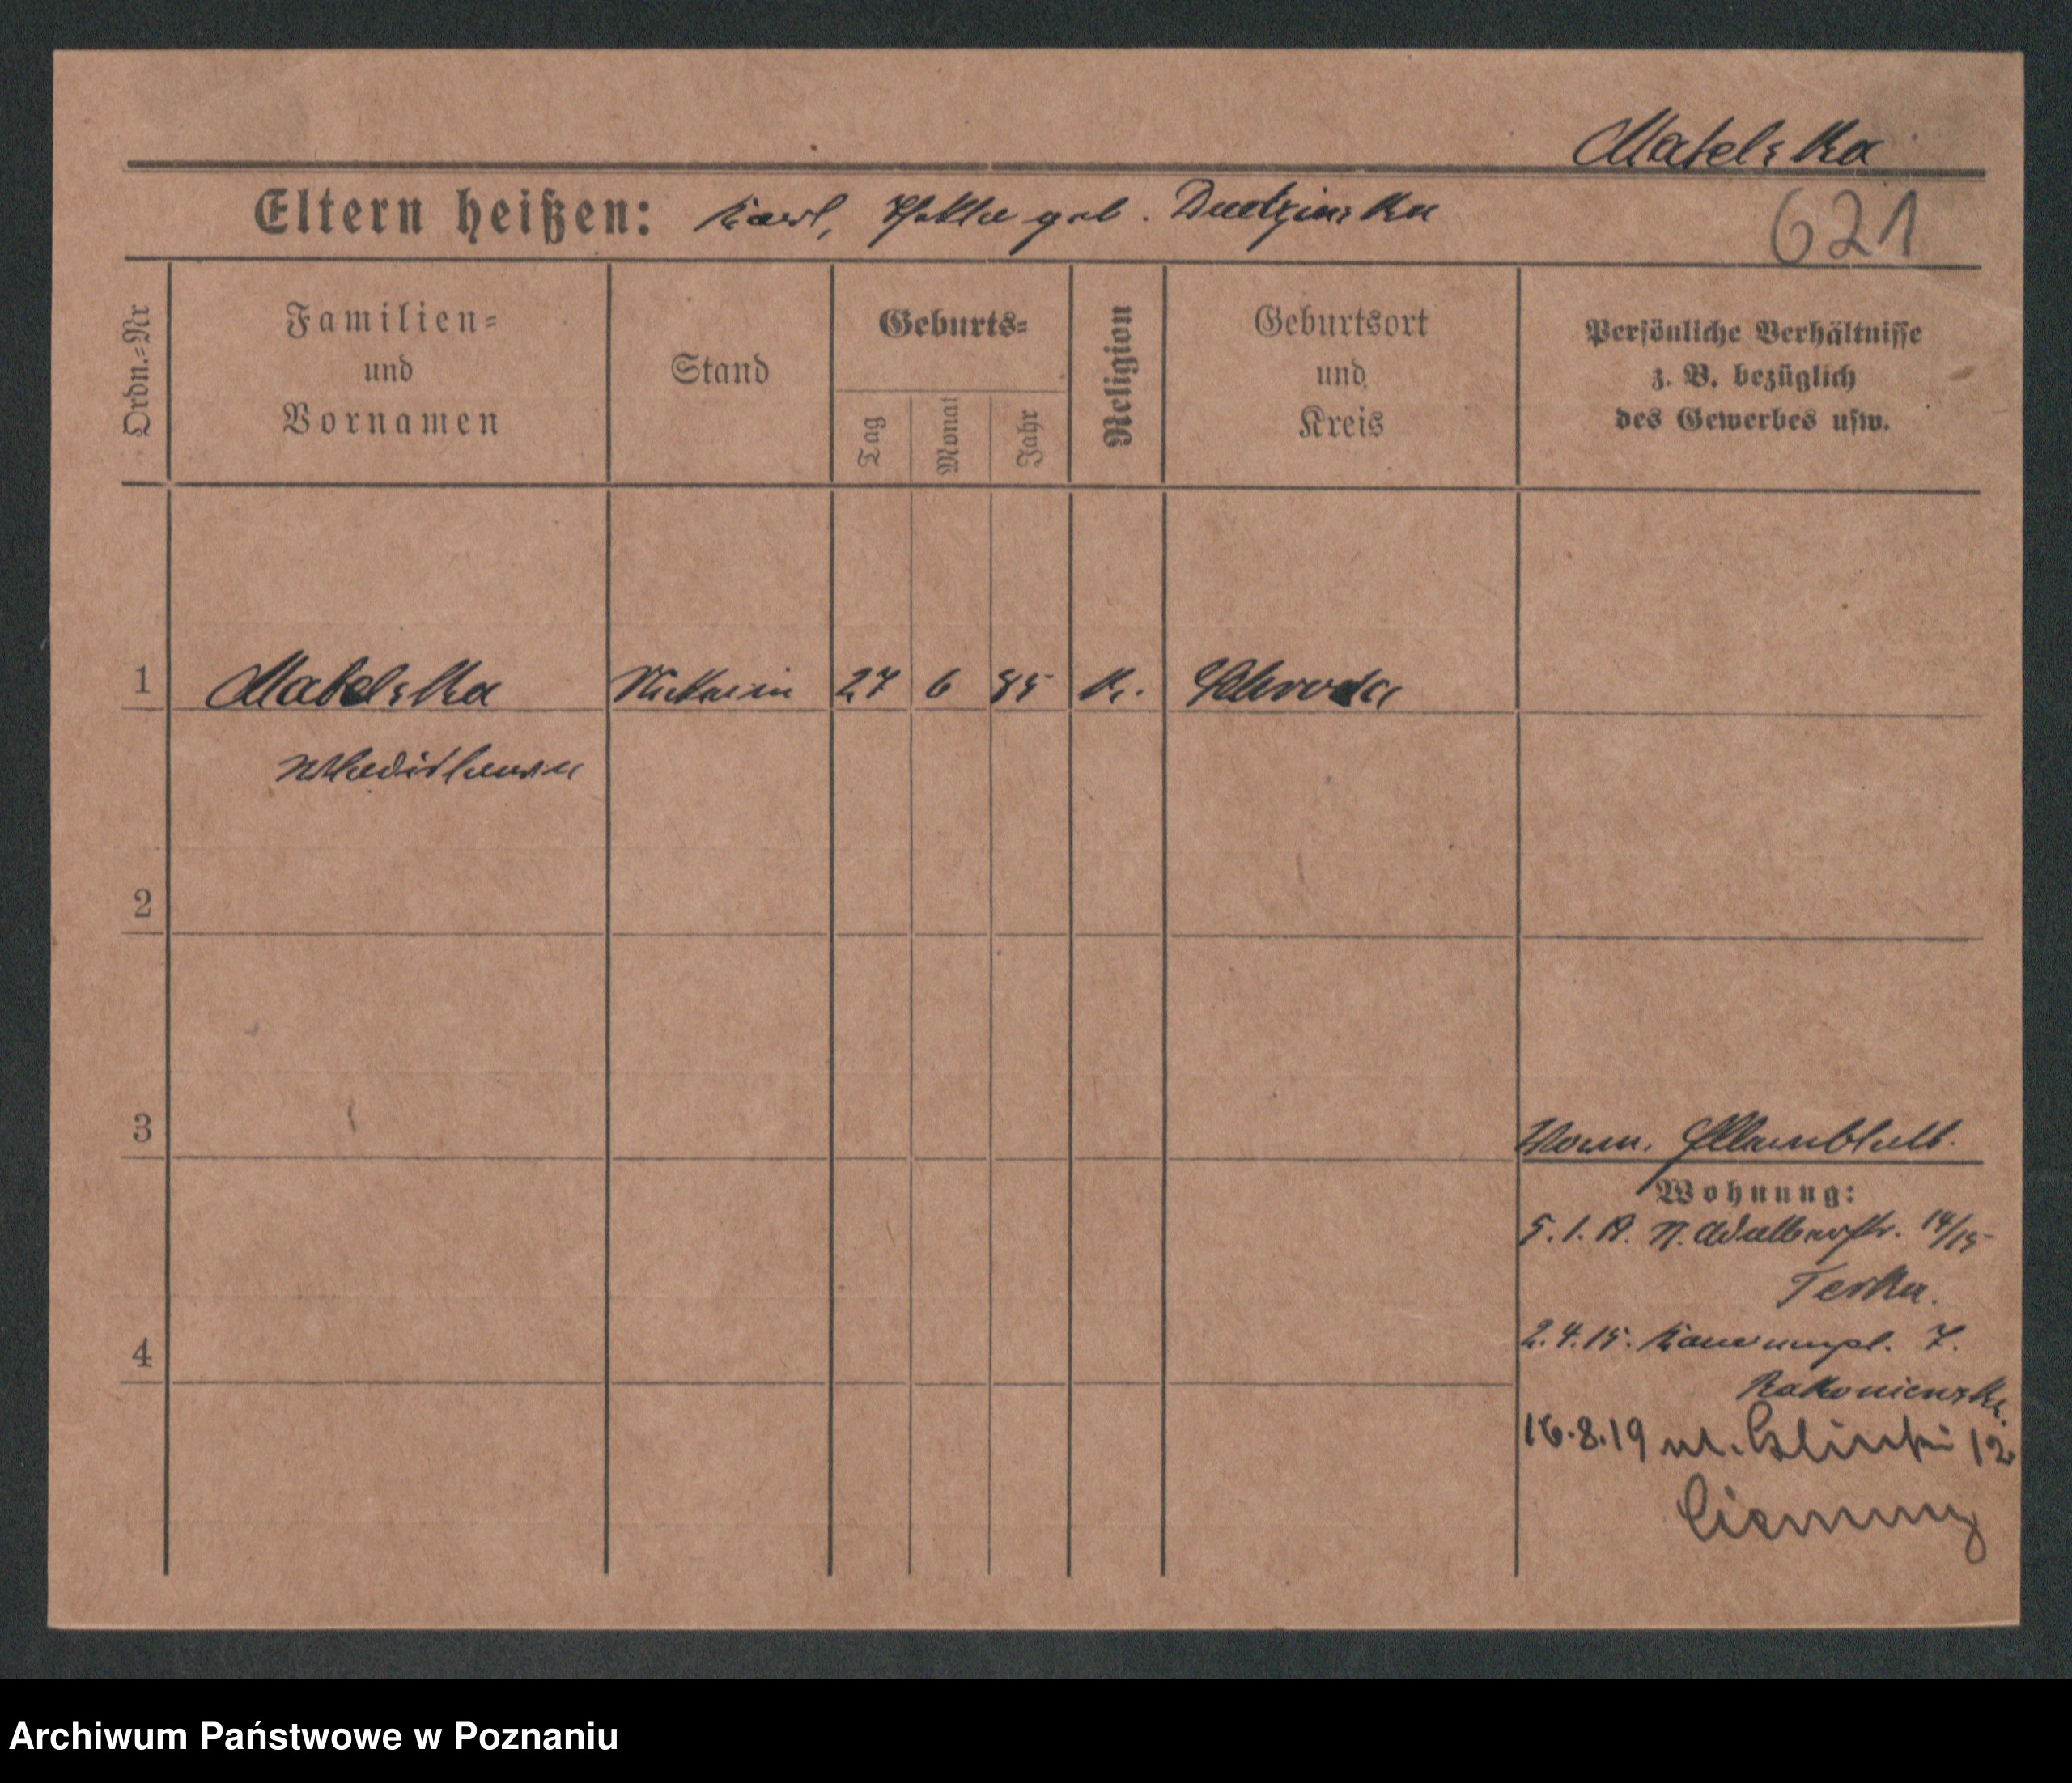 Matelska
Eltern heißen: Karl, geb. Dudzinska
621
Ordn.=Nr
Familien=
und
Vornamen
Stand
Geburts=
Tag
Monat
Jahr
Religion
Geburtsort
und
Kreis
Persönliche Verhältnisse
z. B. bezüglich
des Gewerbes usw.
1 Matelska Näherin 27 6 85 K. Schroda
Wladislawa
2
3
Vorm.
Wohnung:
5.1. N. Adalbertstr. 14/15
2.4.15. 7.
Rakoniewska.
16.8.19 ul. 12
4
Archiwum Państwowe w Poznaniu